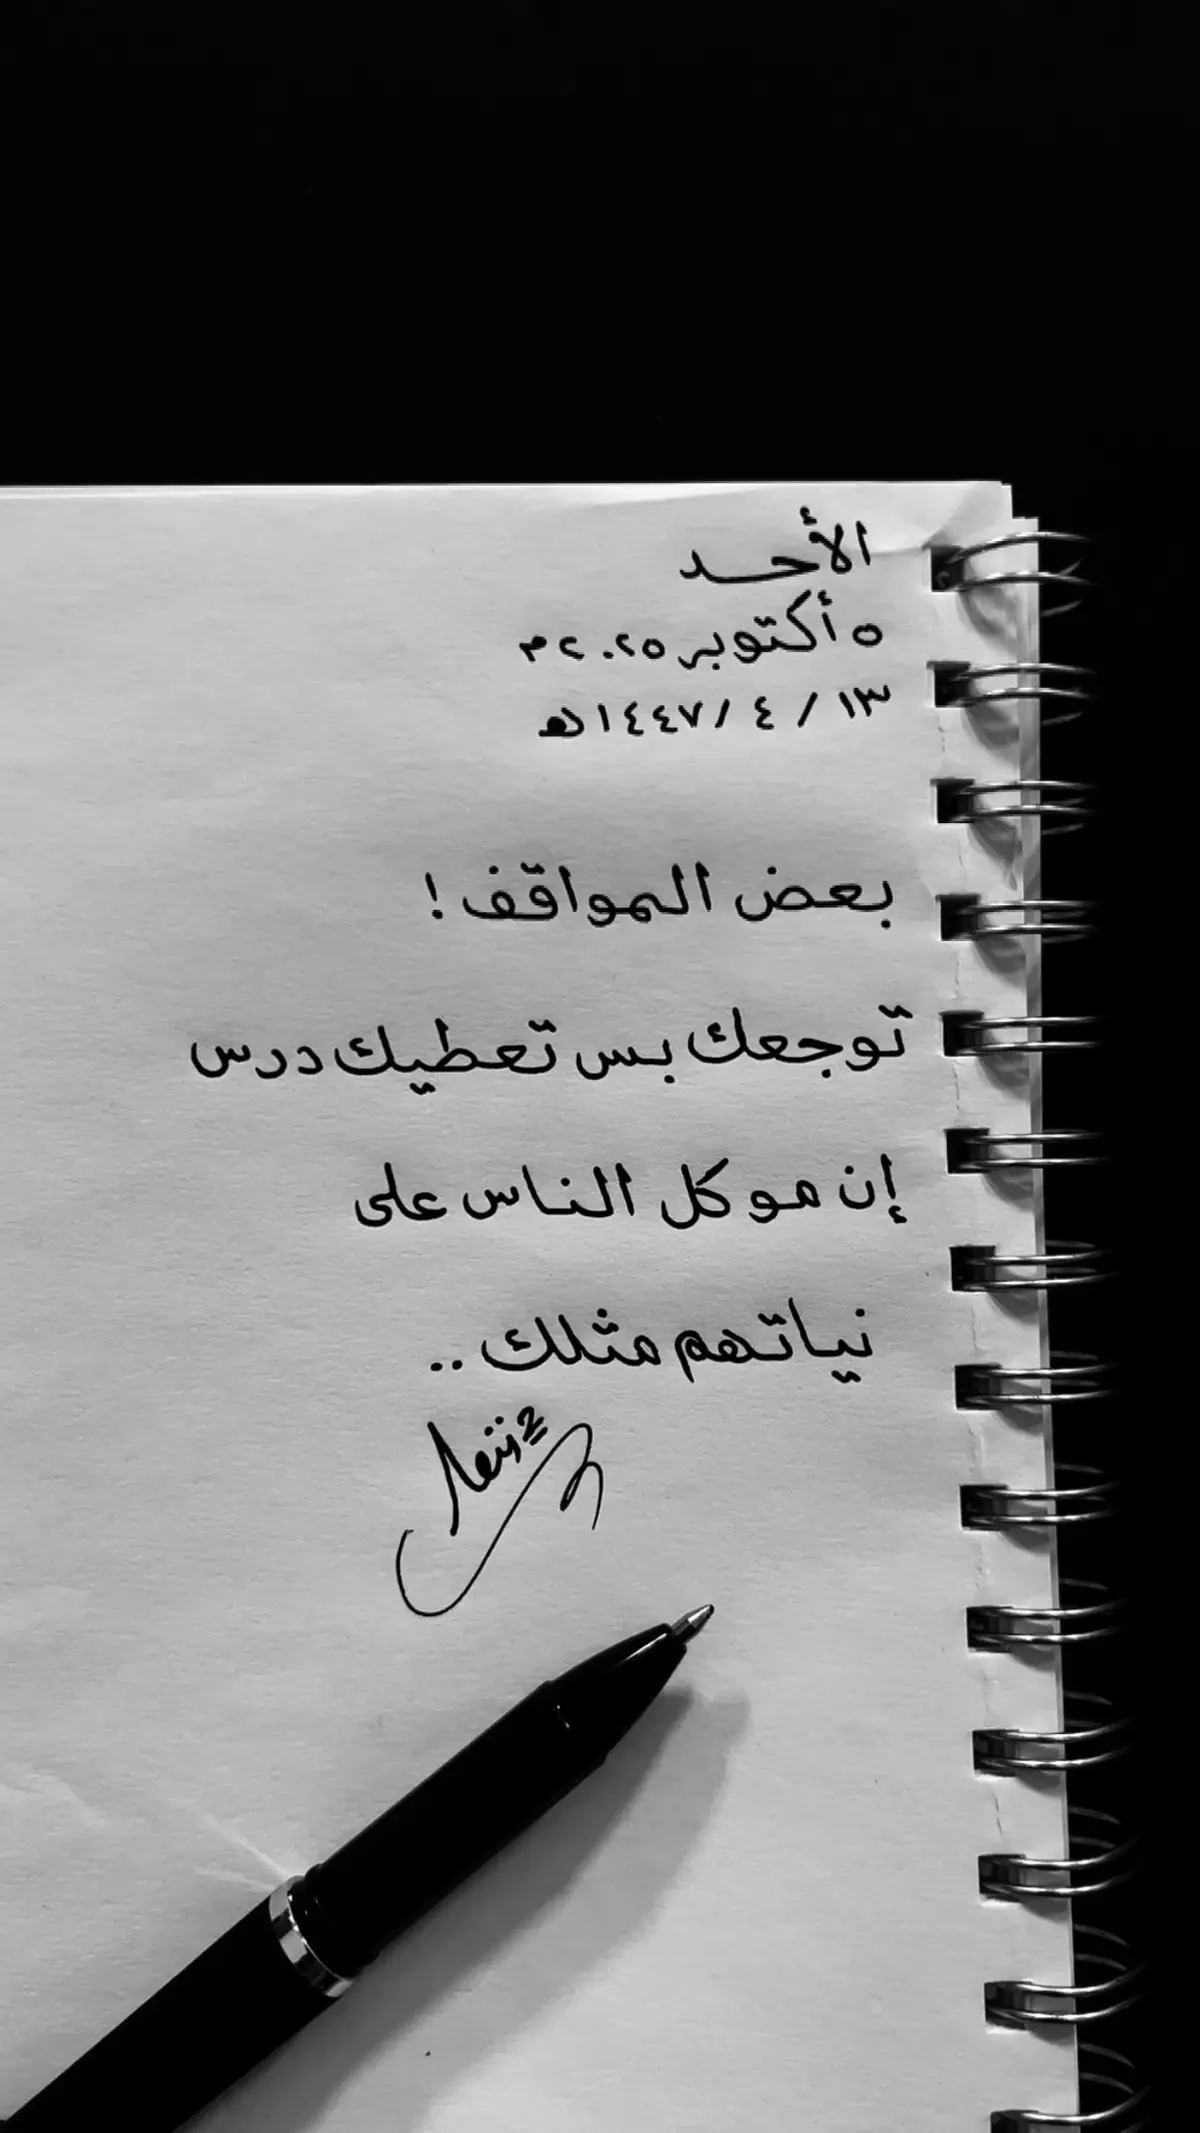 الأحد
٥ أكتوبر ٢٠٢٥م
١٣ / ٤ / ١٤٤٧هـ
بعض المواقف !
توجعك بس تعطيك درس
إن مو كل الناس على
نياتهم مثلك ..